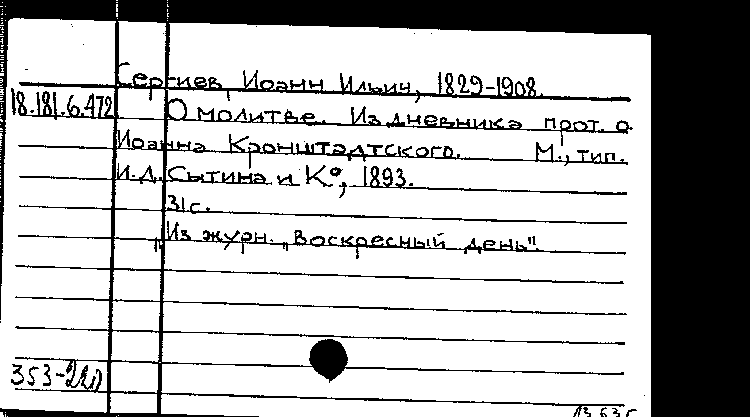 Сергиев, Иоанн Ильич, 1829-1908.
18.181.6.472 О молитве. Из дневника прот. о.
Иоанна Кронштадтского. М., тип.
И.Д. Сытина и К°, 1893.
31 с.
"Из журн. „Воскресный день".
353-220